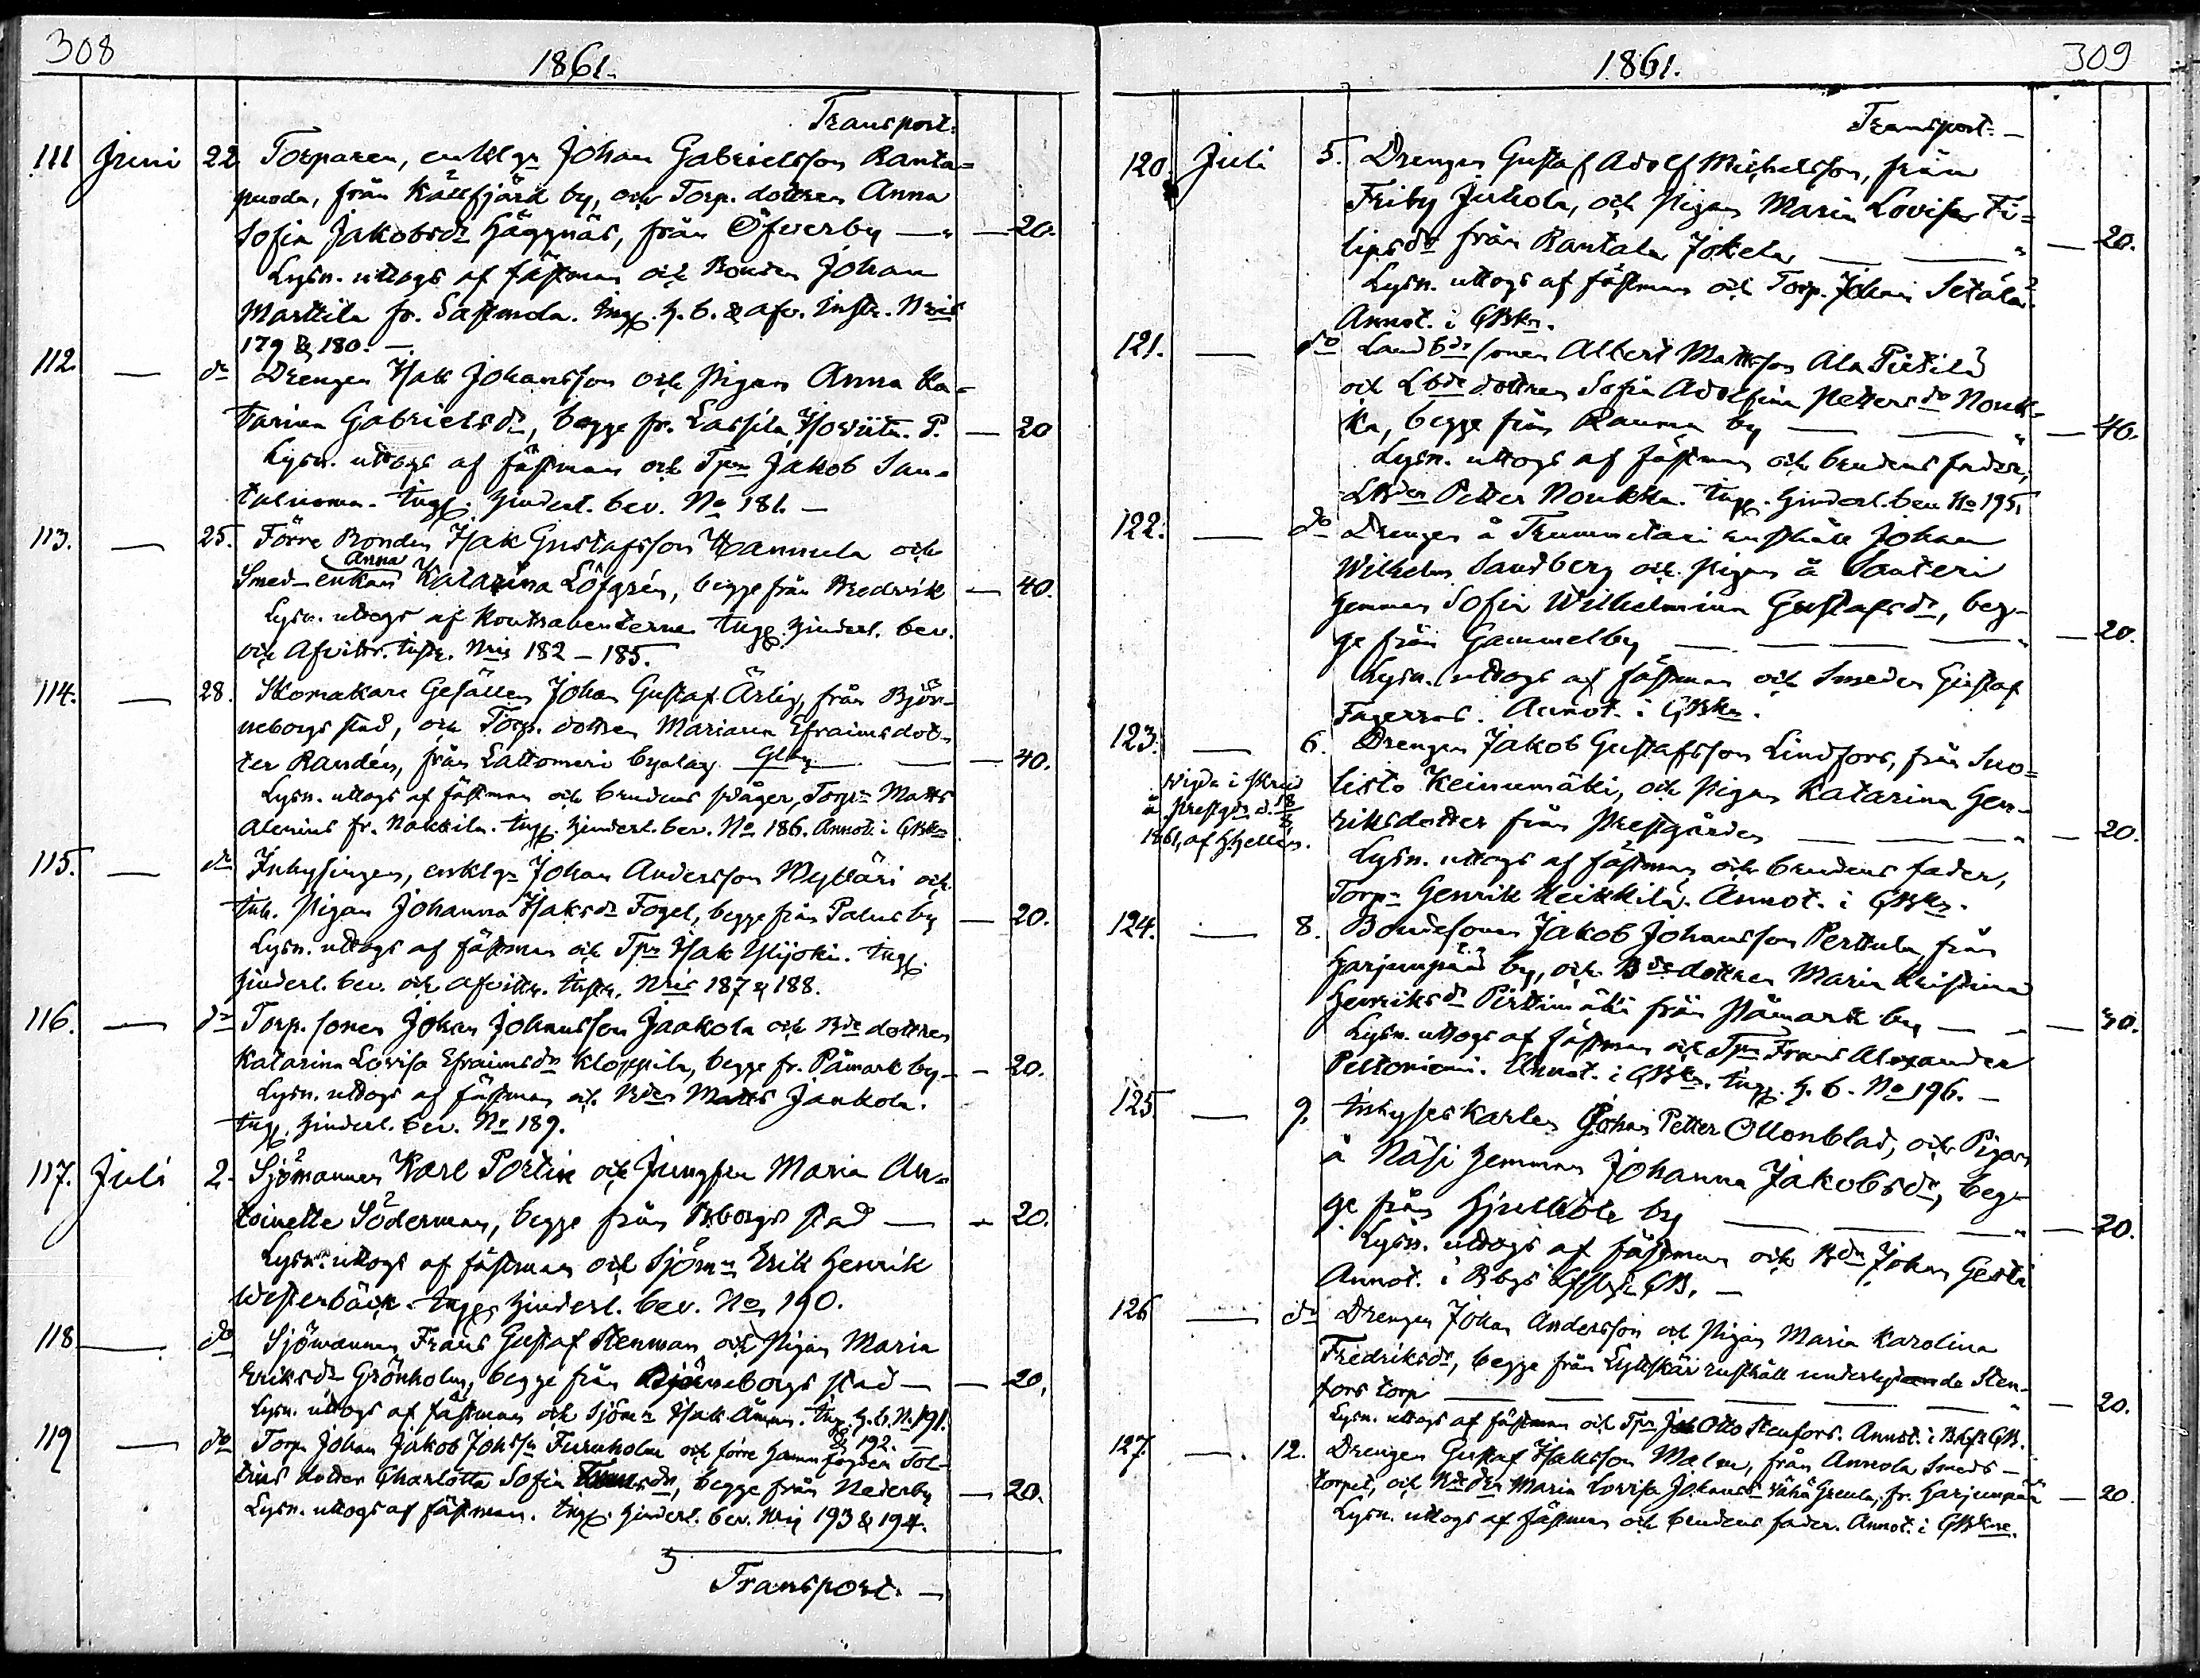 308
1861.
Transport.
111 Juni 22 Torparen, enklgn Johan Gabrielsson Ranta=
puoda, från Kållfjärd by, och Torp. dottren Anna
Sofia Jakobsdr Häggnäs, från Öfverby — " — 20.
Lysn. uttogs af fästman och Bonden Johan
Marttila fr. Sastmola. Ingg. h. b. & afv. instr. Nris
179 & 180. —
112 — do Drengen Isak Johansson och Pigan Anna Ka-
tarina Gabrielsdr, begge fr. Lassila, P. — 20
Lysn. uttogs af fästman och Tprn Jakob San-
taluoma. Ingg. hinderl. bev. No 181. —
113. — 25. Förre Bonden Isak Gustafsson Hannula och
Anna
Smed-enkan Katarina Löfgrén, begge från Bredvik — 40.
Lysn. uttogs af Kontrahenterne Ingg. hinderl. bev.
och Afvittr. instr. Nris 182 – 185.
114. — 28. Skomakare Gesällen Johan Gustaf Ärlig, från Björ-
neborgs stad, och Torp. dottren Mariana Efraimsdot-
ter Randén, från Lattomeri byalag — — 40.
Lysn. uttogs af fästman och brudens svåger, Torprn Matts
Alenius fr. Nakkila. Ingg. hinderl. bev. No 186. Annot. i GBkn
115. — do Inhysingen, enklgn Johan Andersson Mylläri och
Inh. Pigan Johanna Isaksdr Fogel, begge från Palus by — 20.
Lysn. uttogs af fästman och Tprn Isak Ylijoki. Ingg.
hinderl. bev. och Afvittr. instr. Nris 187 & 188.
116. — do Torp. sonen Johan Johansson Jaakola och Bde dottren
Katarina Lovisa Efraimsdr Kloppila, begge fr. Påmark by — — 20.
Lysn. uttogs af fästman och Bden Matts Jankola.
Ingg. hinderl. bev. No 189.
117. Juli 2. Sjömannen Karl Portin och Jungfru Maria An-
toinette Söderman, begge från Bborgs stad — — 20.
Lysn. uttogs af fästman och Sjömn Erik Henrik
Westerbäck. Ingg. hinderl. bev. No 190.
118 — do Sjömannen Frans Gustaf Stenman och Pigan Maria
Eriksdr Grönholm, begge från Björneborgs stad — — 20.
Lysn. uttogs af fästman och Sjömn Isak Åman. Ingg. h. b. N. 191.
& 192.
119 — do Torp. Johan Jakob Johsson Furuholm och förre Hamnfogden
dotter Charlotta Sofia, begge från Nederby — 20.
Lysn. uttogs af fästman. Ingg. hinderl. bev. Nris 193 & 194.
Transport. —
1861.
309
Transport. —
120 Juli 5. Drengen Gustaf Adolf Michelsson, från
Friby Juhola, och Pigan Maria Lovisa Fi=
lipsdr från Rantala Jokela — — " — 20.
Lysn. uttogs af fästman och Torp. Johan Setälä.
Annot. i GBkn.
121. — do Landbdssonen Albert Mattsson Ala Pietilä
och Lbds dottren Sofia Adolfina Pettersdr Nouk-
ka, begge från Rauma by — — " — 40.
Lysn. uttogs af fästman och brudens fader,
Lbden Petter Noukka. Ingg. hinderl. bev No 195.
122. — do Drengen å Trummetari rusthåll Johan
Wilhelm Sandberg och Pigan å Santeri
hemman Sofia Wilhelmina Gustafsdr, beg-
ge från Gammelby — — — " — 20.
Lysn. uttogs af fästman och Smeden Gustaf
Fagerroos. Annot. i GBkn.
123. — 6. Drengen Jakob Gustafsson Lindfors, från Suo=
listo Keinumäki, och Pigan Katarina Hen-
riksdotter från Prestgården — — " — 20.
Lysn. uttogs af fästman och brudens fader,
Torprn Henrik Heikkilä. Annot. i GBkn.
Wigda i
å Prestgdn d. 18/8
1861, af Hjellén.
124. — 8. Bondesonen Jakob Johansson Perttula, från
Harjunpää by, och Bde dottren Maria Kristina
Henriksdr Pirttimäki från Påmark by — " — 30.
Lysn. uttogs af fästman och Tprn Frans Alexander
Peltoniemi. Annot. i GBkn. Ingg. h. b. No 196. —
125. — 9. Inhyseskarlen Johan Petter Ollonblad, och Pigan
å Näsi hemman Johanna Jakobsdr, beg-
ge från Hjulböle by — — " — 20.
Lysn. uttogs af fästman och Bdn Johan Gesti
Annot. i Bbgs GB. —
126 — do Drengen Johan Andersson och Pigan Maria Karolina
Fredriksdr, begge från Lyttskär rusthåll underlydande Sten-
fors torp — — — " — 20.
Lysn. uttogs af fästman och Tprn Otto Stenfors. Annot. i GB.
127 — 12. Drengen Gustaf Isaksson Malm, från Annola Smeds-
torpet, och Bde dtr Maria Lovisa Johansdr Vähä Greula, fr. Harjunpää — 20
Lysn. uttogs af fästman och brudens fader. Annot. i GBkne.